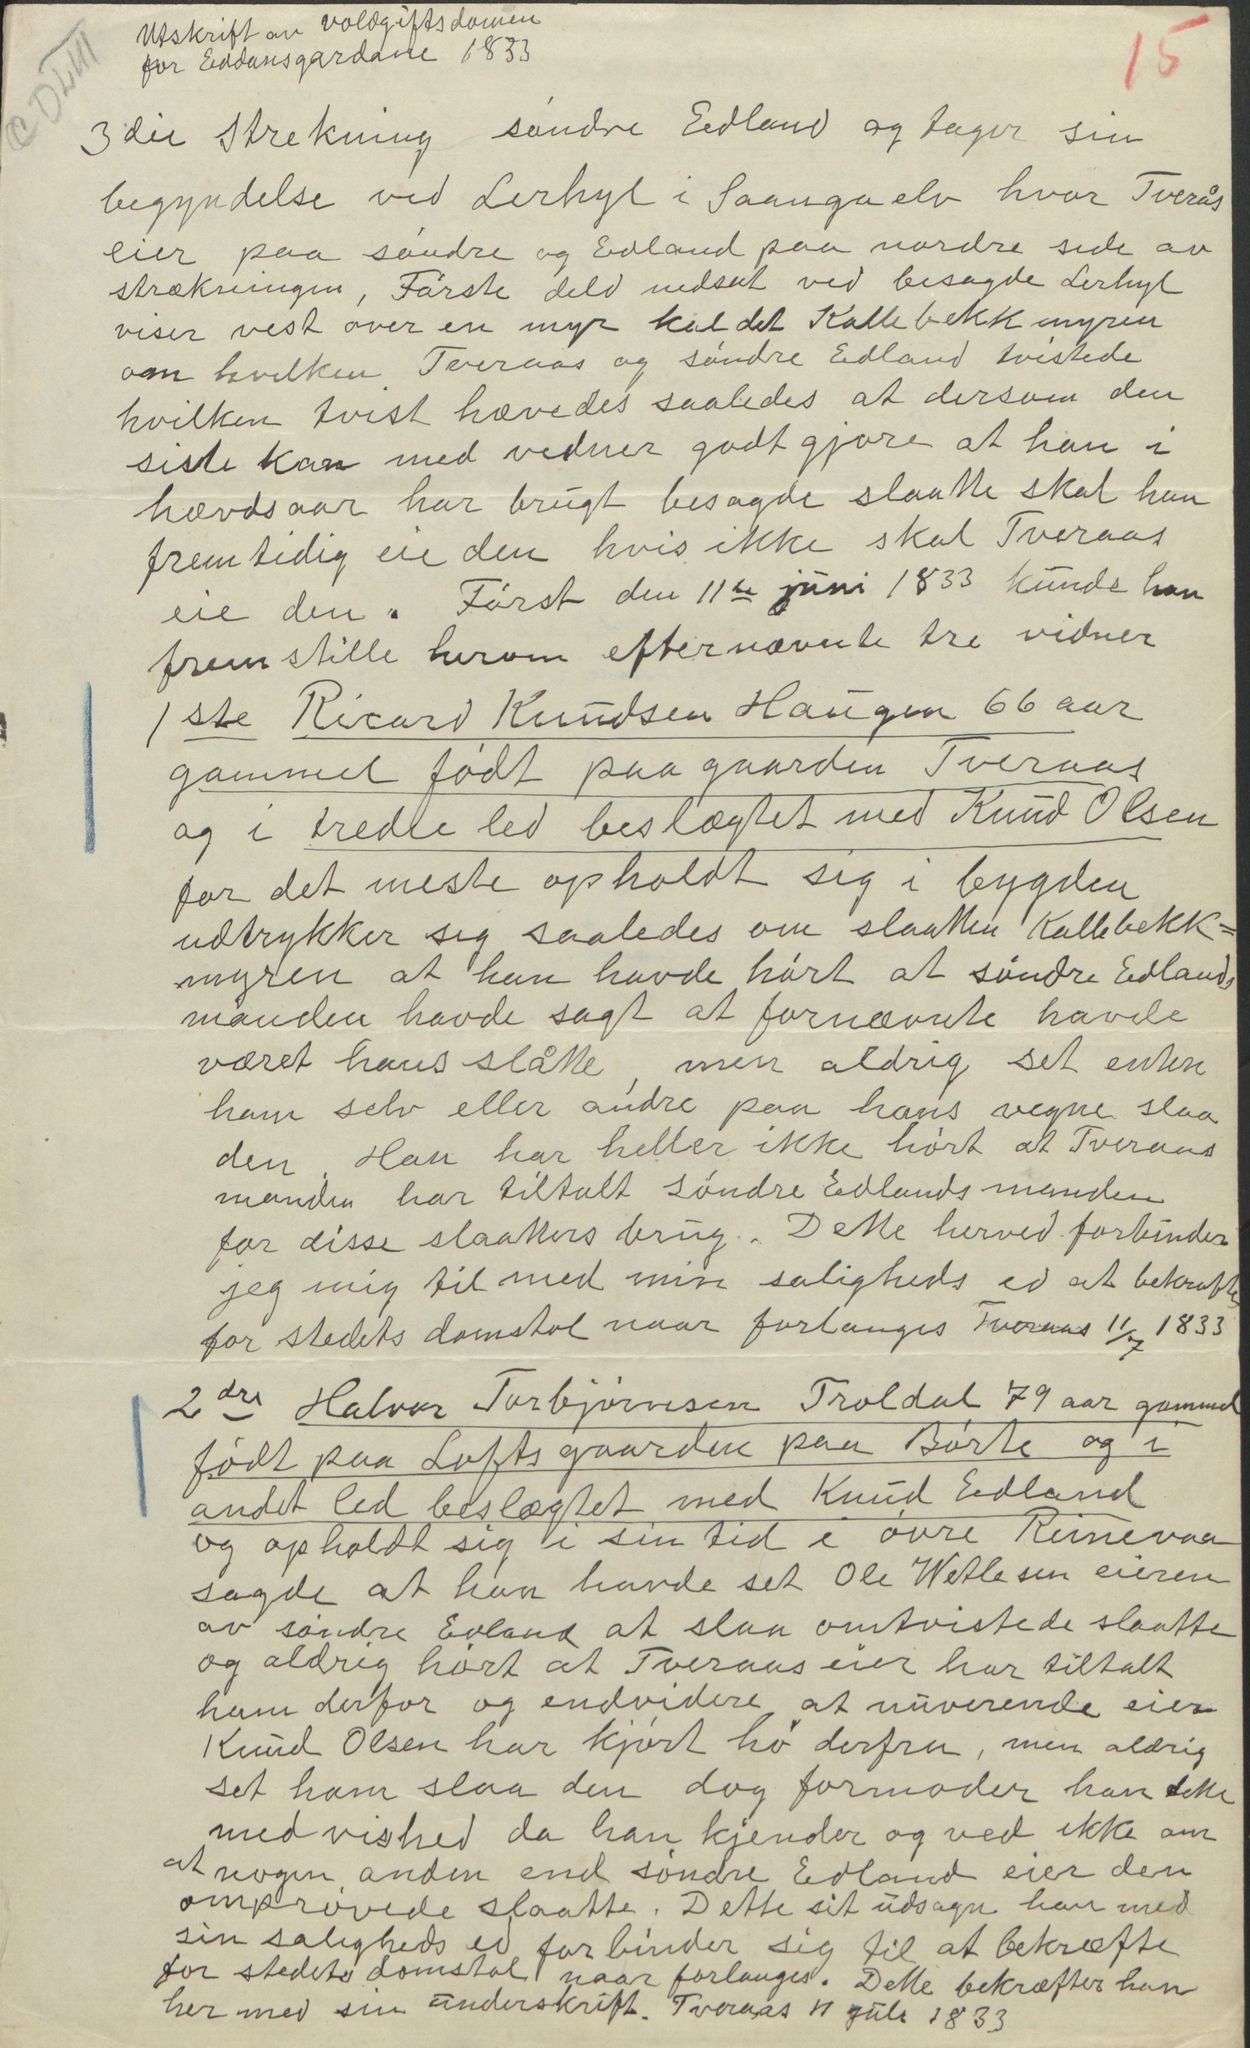 Utskrift av voldgiftsdomen
for Eddansgardane 1833
15
3die Strekning söndre Edland og tager sin
begyndelse ved Lerhyl i Saanga elv hvor Tverås
eier paa söndre og Edland paa nordre side av
strækningen, Förste deld nedsat ved besagde Lerhyl
viser vest over en myr kaldet Kallebekkmyren
om hvilken Tveraas og söndre Edland tvistede
hvilken tvist hævedes saaledes at dersom den
siste kan med vedner godtgjøre at han i
hævdsaar har brugt besagde slaatte skal han
fremtidig eie den hvis ikke skal Tveraas
eie den. Först den 11te juni 1833 kunde han
fremstille herom efternævnte tre vidner
1ste Ricard Knudsen Haugen 66 aar
gammel födt paa gaarden Tveraas
og i tredle led beslægtet med Knud Olsen
for det meste opholdt sig i bygden
udtrykker sig saaledes om slaatten Kallebekk=
myren at han havde hört at söndre Edlands
manden havde sagt at fornævnte havde
været hans slåtte, men aldrig set enten
ham selv eller andre paa hans vegne slaa
den. Han har heller ikke hört at Tveraas
manden har tiltalt söndre Edlands manden
for disse slaatters brug. Dette herved forbinder
jeg mig til med min saligheds ed at bekræfte
for stedets domstol naar forlanges Tveraas 11/7 1833
2dre Halvor Torbjörnsen Troldal 79 aar gammel
födt paa Loftsgaarden paa Börte og i
andet led beslægtet med Knud Edland
og opholdt sig i sin tid i övre Rinevaa
sagde at han havde set Ole Wetlesen eieren
av söndre Edland at slaa omtvistede slaatte
og aldrig hört at Tveraas eier har tiltalt
ham derfor og endvidere at nuverende eier
Knud Olsen har kjört hö derfra, men aldrig
set ham slaa den dog formoder han dette
med vished da han kjender og ved ikke om
at nogen anden end söndre Edland eier den
omprövede slaatte. Dette sit udsagn han med
sin saligheds ed forbinder sig til at bekræfte
for stedets domstol naar forlanges. Dette bekræfter han
her med sin underskrift. Tveraas 11 juli 1833